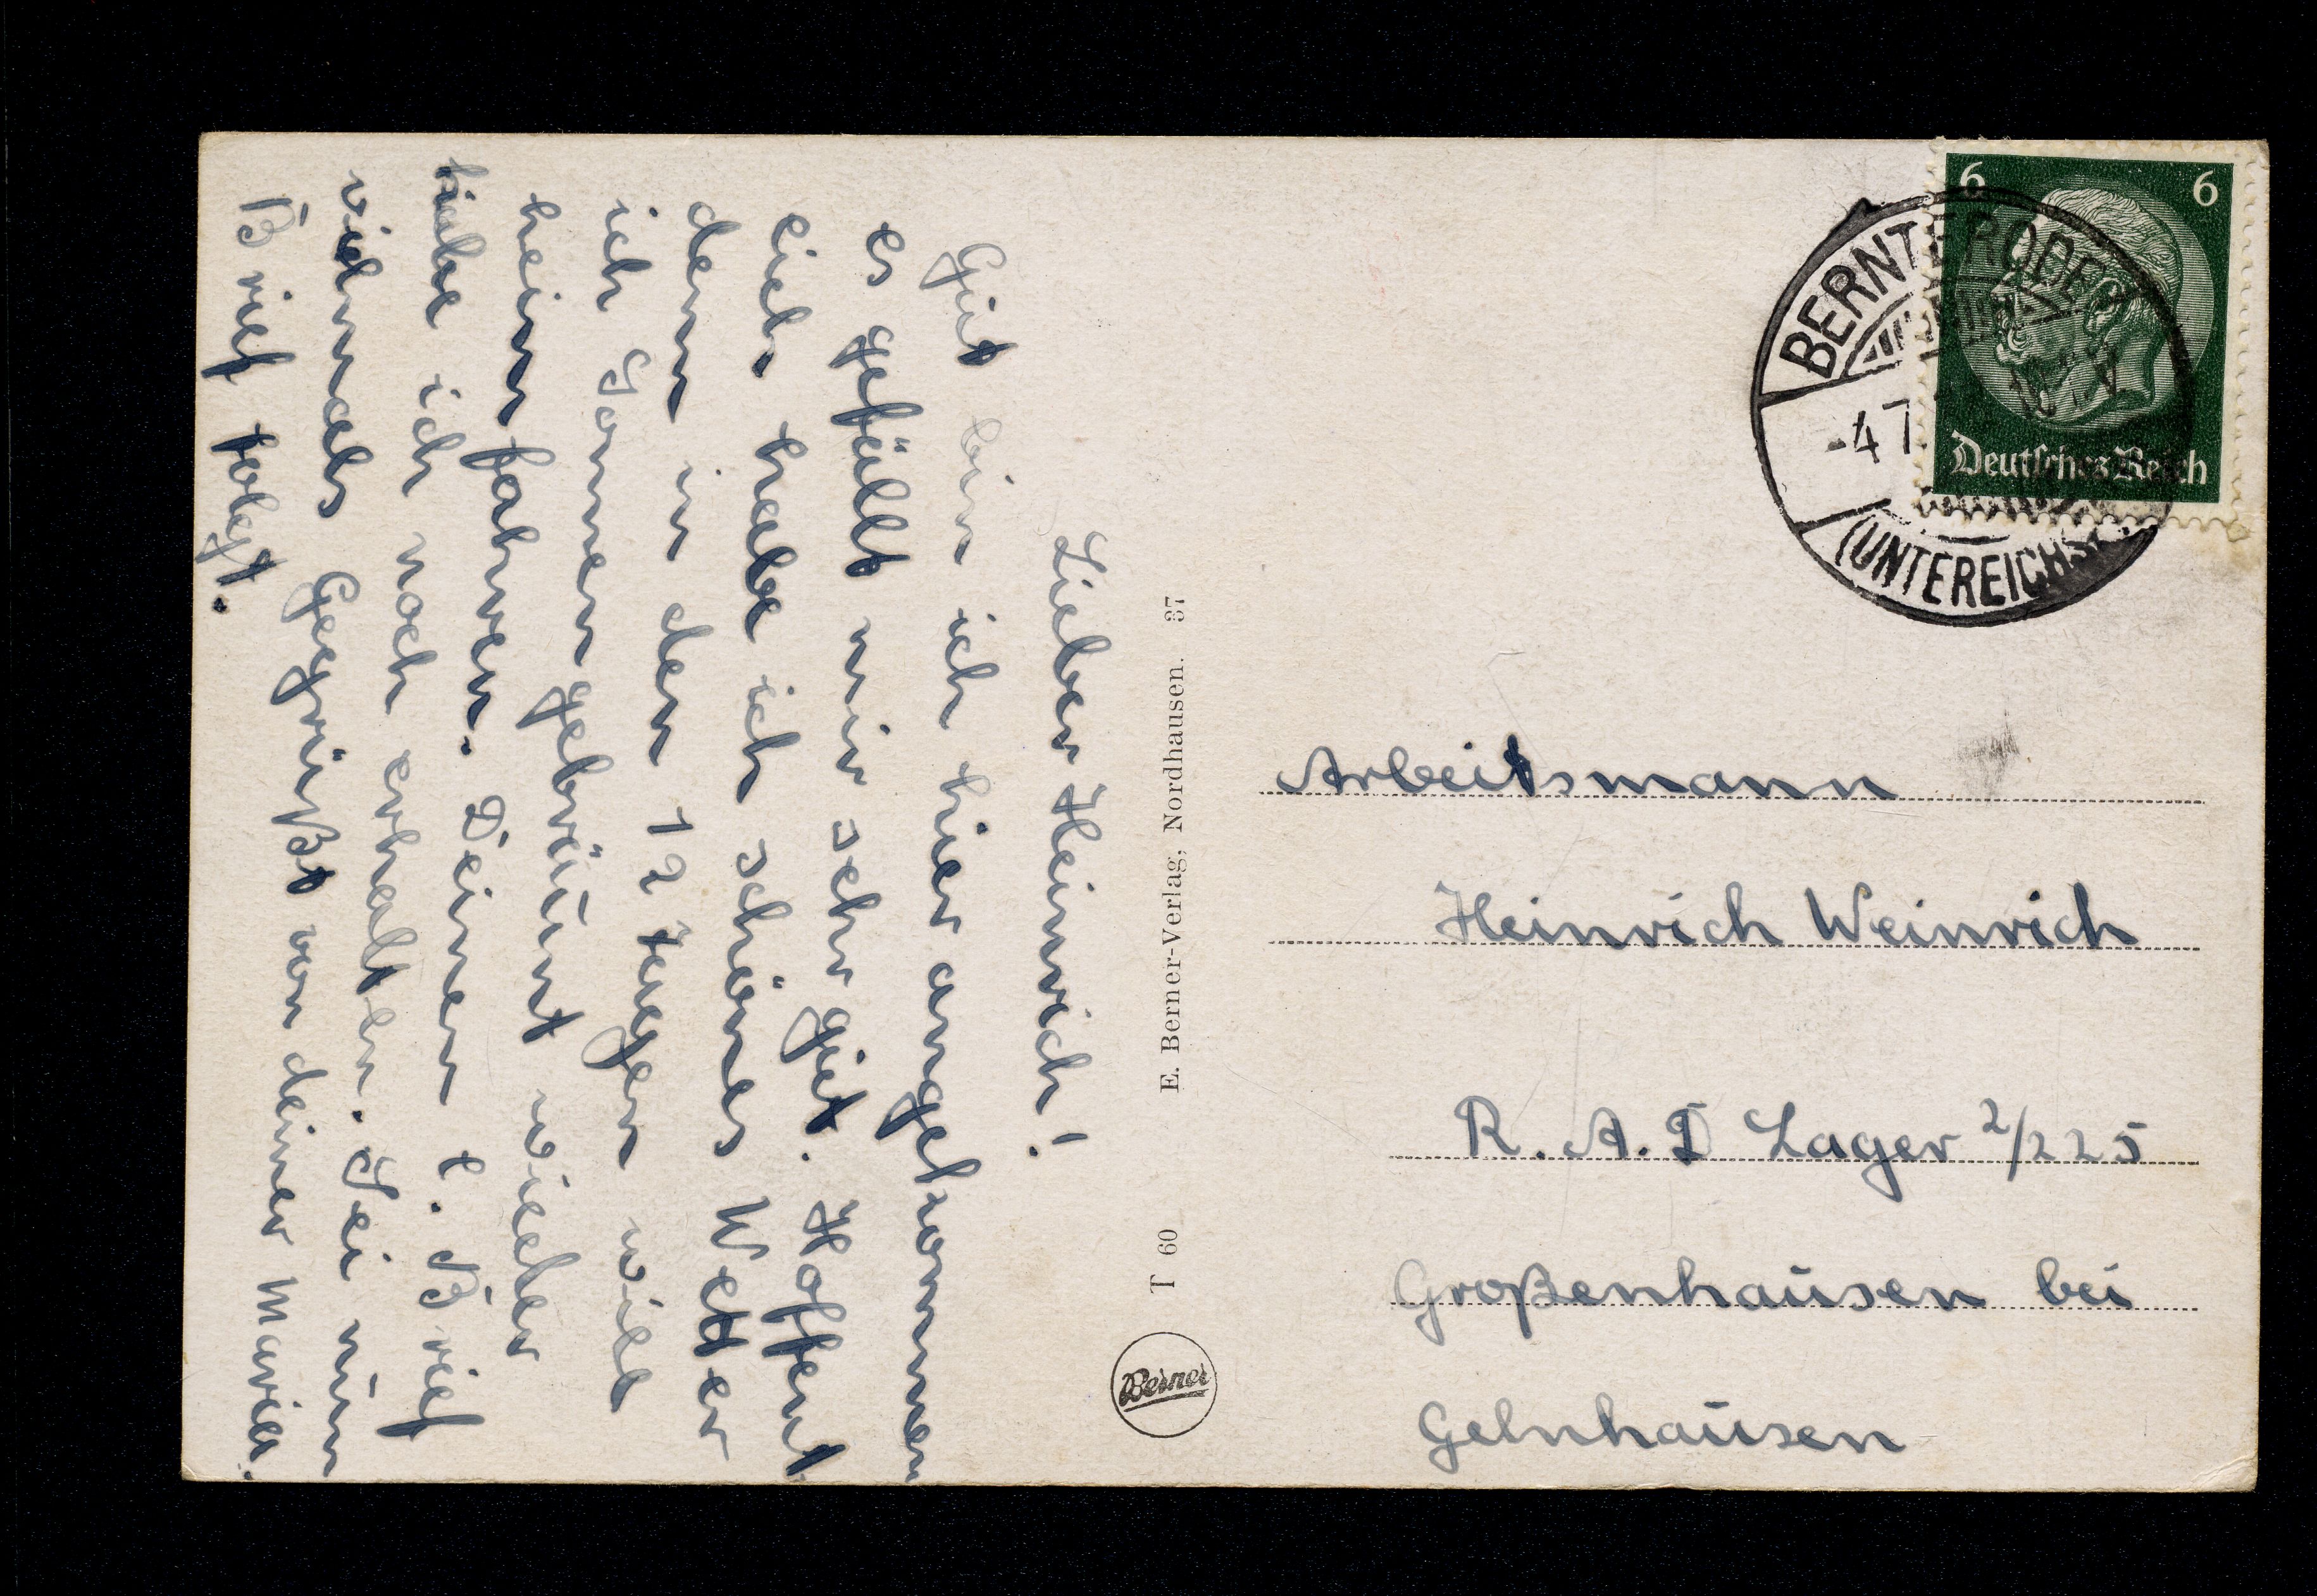 Lieber Heinrich!
Gut bin ich hier angekommen
es gefällt mir sehr gut. Hoffent
lich habe ich schönes Wetter
denn in den 12 tagen will
ich Sonnengebräunt wieder
heim fahren. Deinen l. Brief
habe ich noch erhalten. Sei nun
vielmals Gegrüßt von deiner Maria.
Brief folgt.
E. Berner-Verlag, Nordhausen. 37
T 60
Berner
6 6
Deutsches Reich
BERNTERODE
-4.7.
10-11 V
(UNTEREICHSF.
Arbeitsmann
Heinrich Weinrich
R.A.D Lager 2/225
Großenhausen bei
Gelnhausen